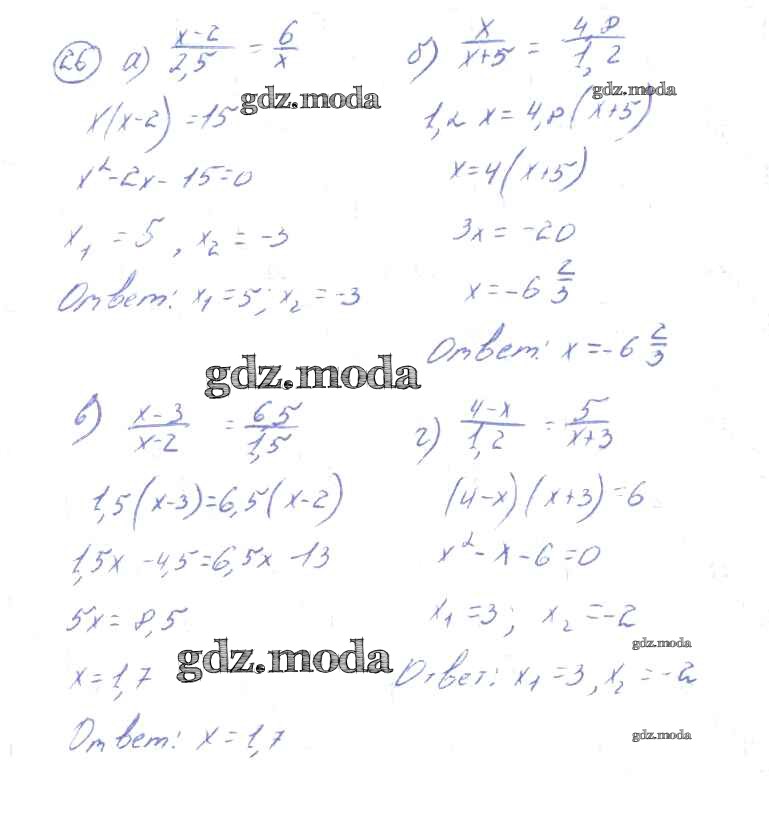 26 а) (x-2)/2,5 = 6/x
x(x-2) = 15
x² - 2x - 15 = 0
x₁ = 5, x₂ = -3
Ответ: x₁ = 5; x₂ = -3
б) x/(x+5) = 4,8/1,2
1,2 x = 4,8(x+5)
x = 4(x+5)
3x = -20
x = -6 2/3
Ответ: x = -6 2/3
в) (x-3)/(x-2) = 6,5/1,5
1,5(x-3) = 6,5(x-2)
1,5x - 4,5 = 6,5x - 13
5x = 8,5
x = 1,7
Ответ: x = 1,7
г) (4-x)/1,2 = 5/(x+3)
(4-x)(x+3) = 6
x² - x - 6 = 0
x₁ = 3; x₂ = -2
Ответ: x₁ = 3, x₂ = -2
gdz.moda
gdz.moda
gdz.moda
gdz.moda
gdz.moda
gdz.moda